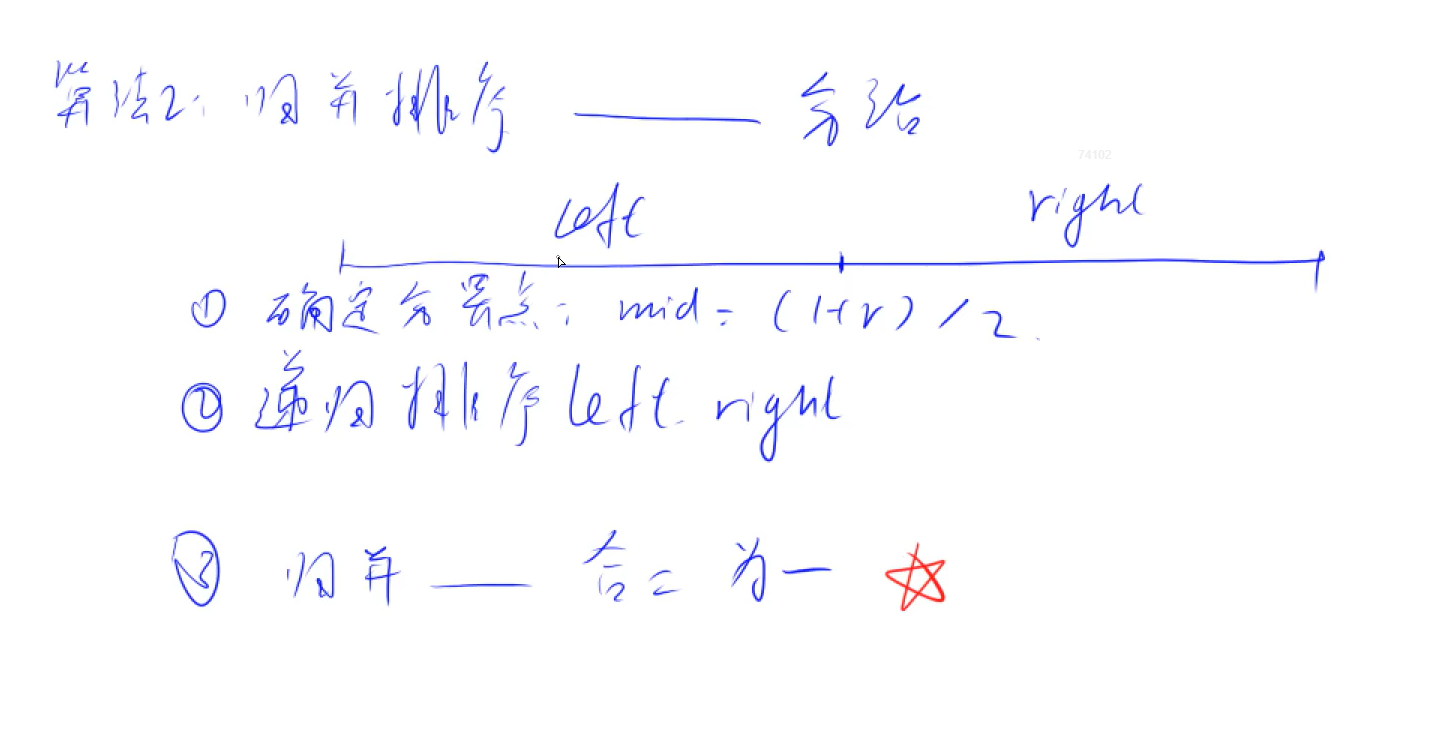 算法2: 归并排序 —— 分治
74102
left right
① 确定分界点: mid = (l+r) / 2.
② 递归排序 left. right
③ 归并 —— 合二为一